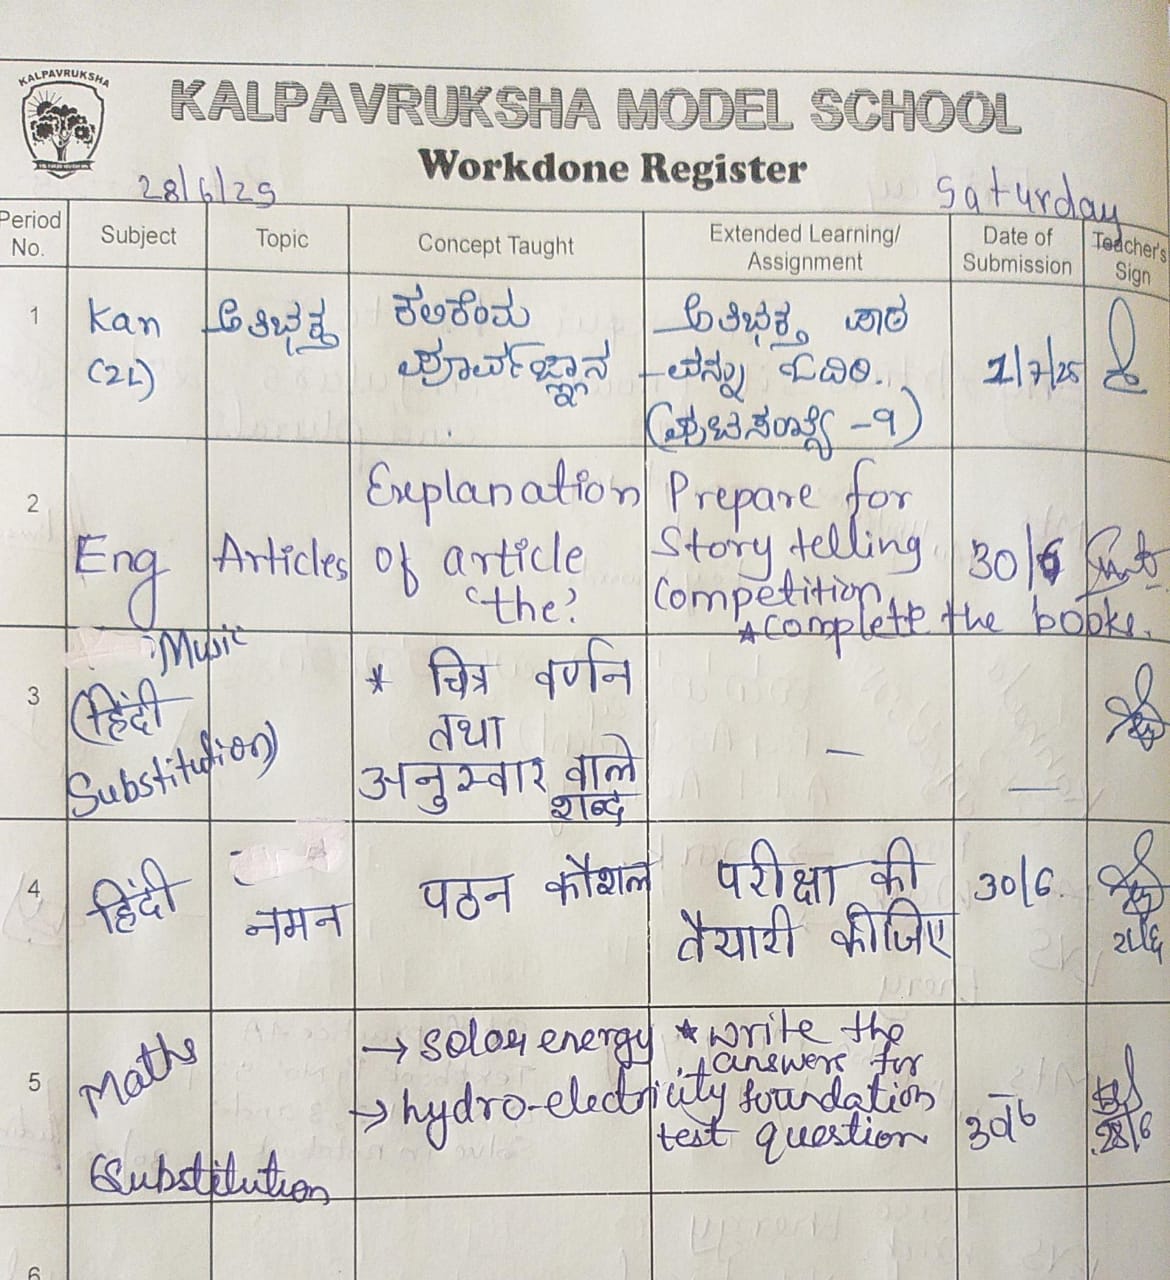 KALPAVRUKSHA
KALPAVRUKSHA MODEL SCHOOL
Workdone Register
28/6/25
Saturday
Period No.
Subject
Topic
Concept Taught
Extended Learning/
Assignment
Date of
Submission
Teacher's
Sign
1
Kan
(2L)
ಅತಿಭಕ್ತ
ಕಲಿಕೆಯ
ಪೂರ್ವಜ್ಞಾನ
ಅತಿಭಕ್ತ ಪಾಠ
-ವನ್ನು ಓದಿರಿ.
(ಪುಟಸಂಖ್ಯೆ -೧)
1/7/25
2
Eng
Articles
Explanation
of article
'the'
Prepare for
Story telling
Competition
*Complete the books.
30/6
3
Music
(हिंदी
Substitution)
* चित्र वर्णन
तथा
अनुस्वार वाले
शब्द
—
—
4
हिंदी
नमन
पठन कौशल
परीक्षा की
तैयारी कीजिए
30/6.
5
Maths
(Substitution
→ solar energy
→ hydro-electricity
* write the
answers for
foundation
test question
30/6
28/6
6